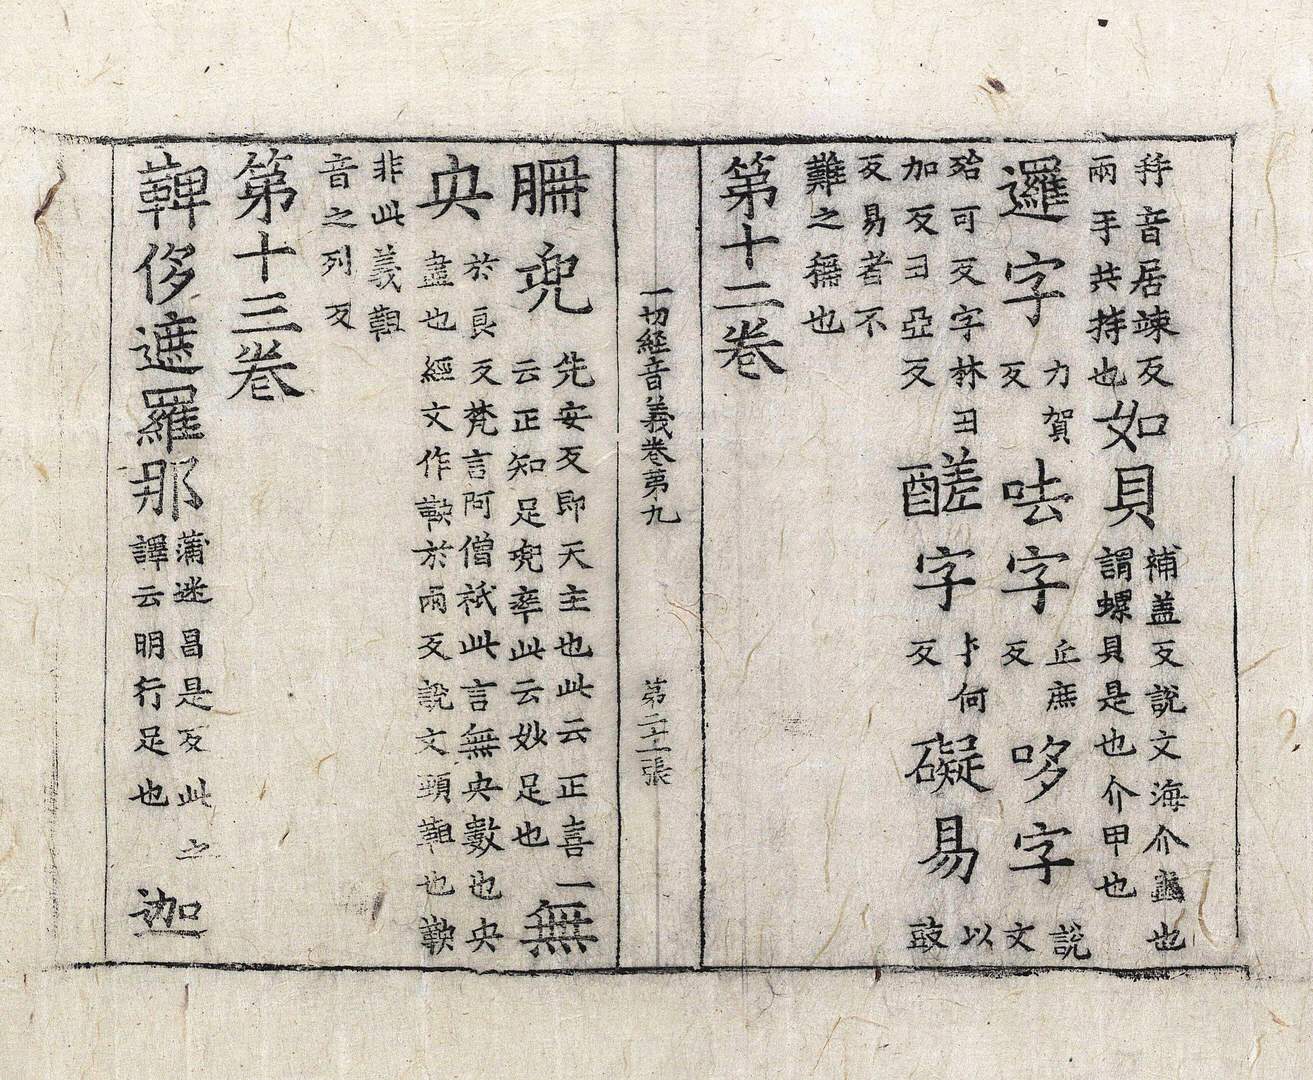 音居竦反
兩手共持也
如貝
補盖反說文海介蟲也
謂螺貝是也介甲也
邏字
力賀
反
呿字
丘庶
反
哆字
說
文
殆可反字林曰
加反曰亞反
醝字
才何
反
礙易
以
豉
反易者不
難之稱也
第十二卷
一切経音義卷第九
第二十一張
兜
先安反即天主也此云正喜一
云正知足兜率此云妙足也
無
央
於良反梵言阿僧祇此言無央數也央
盡也經文作鞅於兩反說文頸靼也鞅
非此義靼
音之列反
第十三卷
鞞侈遮羅那
蒲迷昌是反此之
譯云明行足也
迦